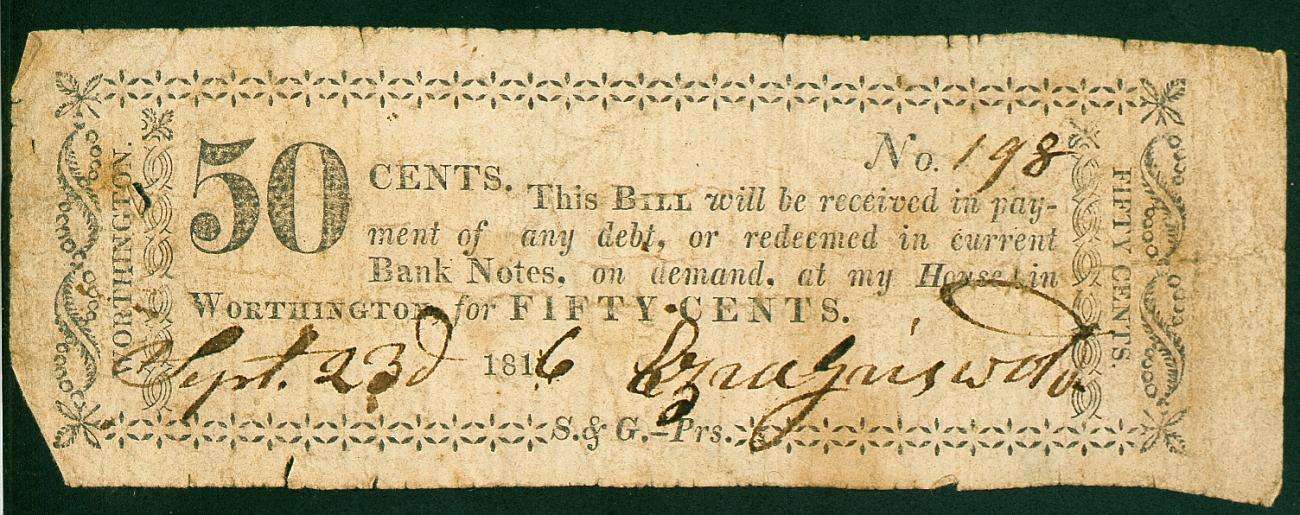 WORTHINGTON.
No. 198
50 CENTS. This BILL will be received in pay-
ment of any debt, or redeemed in current
Bank Notes, on demand, at my House, in
WORTHINGTON for FIFTY CENTS.
Sept. 23d 1816 Ezra Griswold
S. & G.—Prs.
FIFTY CENTS.